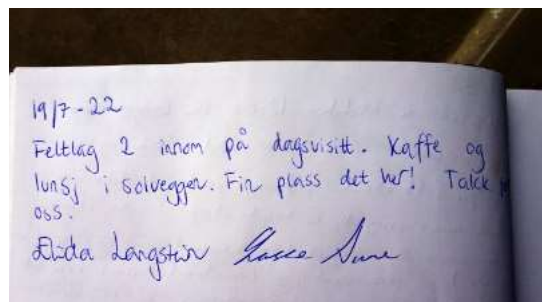 19/7-22
Feltlag 2 innom på dagsvisitt. Kaffe og
lunsj i solveggen. Fin plass det her! Takk
oss.
Langstein